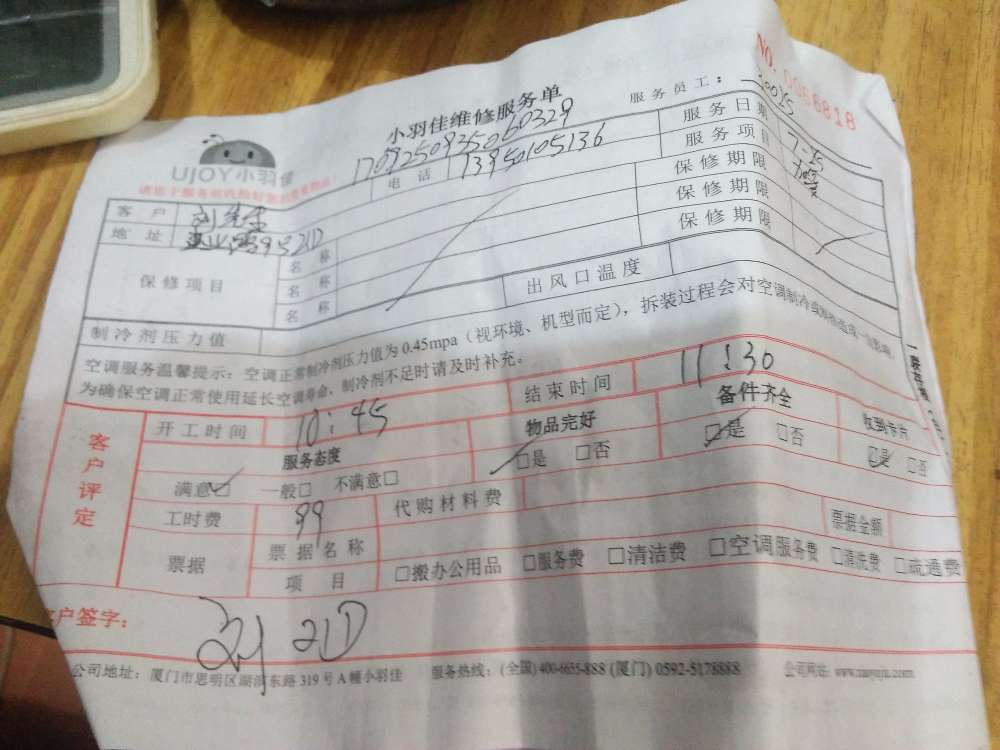 NO. 0056818
小羽佳维修服务单
服务员工：
UJOY小羽佳
电话 13950105136
服务日期 7-5
服务项目
客户 刘先生
保修期限
地址
保修期限
保修期限
保修项目
名称
名称
名称
出风口温度
制冷剂压力值
空调服务温馨提示：空调正常制冷剂压力值为0.45mpa（视环境、机型而定），拆装过程会对空调制冷
为确保空调正常使用延长空调寿命，制冷剂不足时请及时补充。
客户评定
开工时间 10：45
结束时间 11：30
服务态度
物品完好
备件齐全
收到卡片
满意□ 一般□ 不满意□
□是 □否
□是 □否
□是 □否
工时费 99
代购材料费
票据
票据名称
票据金额
项目
□搬办公用品 □服务费 □清洁费 □空调服务费 □清洗费 □疏通费
客户签字：
刘 21D
公司地址：厦门市思明区湖滨东路319号A幢小羽佳 服务热线：(全国) 400-6655-888 (厦门) 0592-5178888 公司网站: